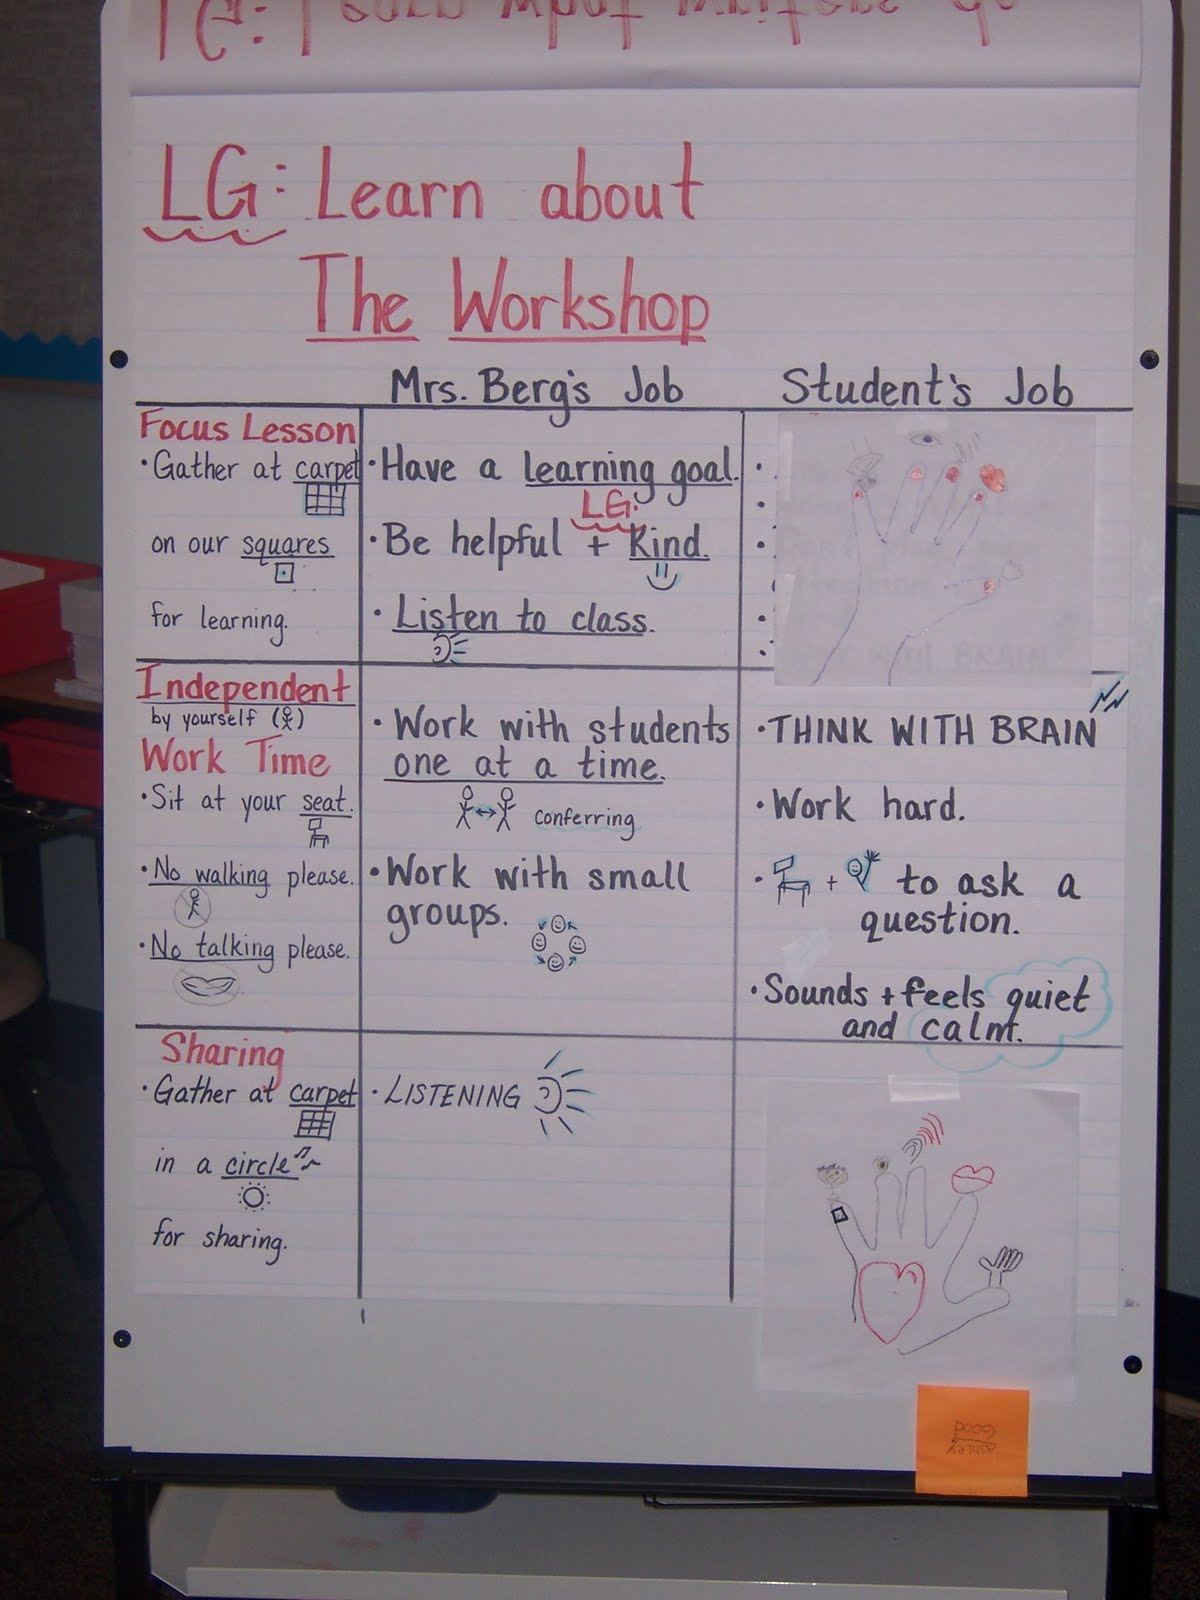 LG: Learn about
The Workshop
Mrs. Berg's Job
Student's Job
Focus Lesson
• Gather at carpet
on our squares
for learning.
• Have a learning goal.
LG:
• Be helpful + Kind.
• Listen to class.
WITH BRAIN
Independent
by yourself
Work Time
• Sit at your seat.
• No walking please.
• No talking please.
• Work with students
one at a time.
conferring
• Work with small
groups.
• THINK WITH BRAIN
• Work hard.
• + to ask a
question.
• Sounds + feels quiet
and calm.
Sharing
• Gather at carpet
in a circle
for sharing.
• LISTENING
Ashley
Good